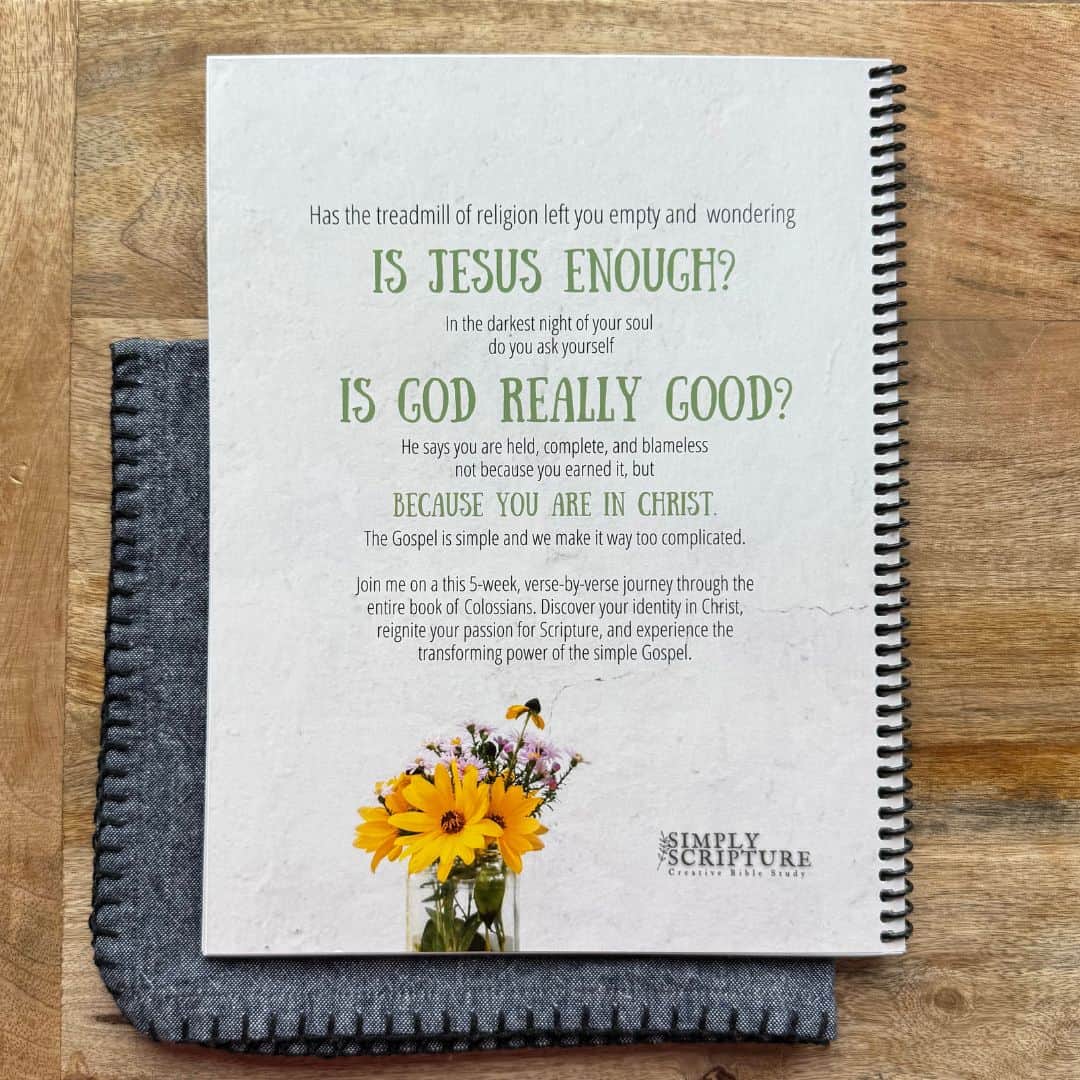 Has the treadmill of religion left you empty and wondering
IS JESUS ENOUGH?
In the darkest night of your soul
do you ask yourself
IS GOD REALLY GOOD?
He says you are held, complete, and blameless
not because you earned it, but
BECAUSE YOU ARE IN CHRIST.
The Gospel is simple and we make it way too complicated.
Join me on a this 5-week, verse-by-verse journey through the
entire book of Colossians. Discover your identity in Christ,
reignite your passion for Scripture, and experience the
transforming power of the simple Gospel.
SIMPLY
SCRIPTURE
Creative Bible Study